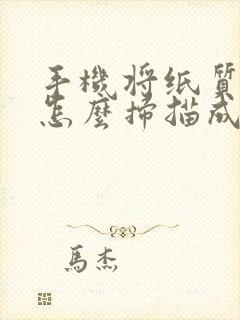 手機将纸質
怎麼掃描成
馬杰